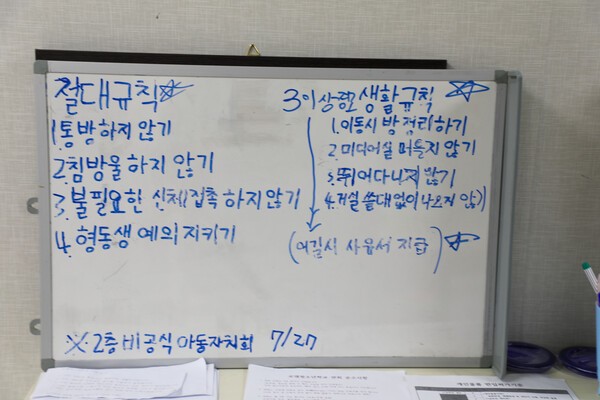 절대규칙☆
1. 통방하지 않기
2. 침방울 하지 않기
3. 불필요한 신체접촉 하지 않기
4. 형동생 예의 지키기
3이상련 생활규칙 ☆
1. 이동시 방 정리하기
2. 미디어실 떠들지 않기
3. 뛰어다니지 않기
4. 거실 쓸대없이 나오지 않기
(어길시 사유서 지급) ☆
※ 2층 비공식 아동자치회 7/27